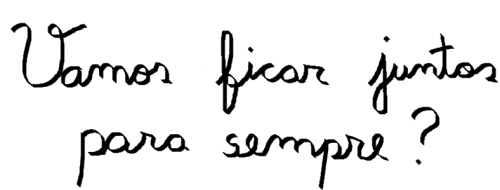 Vamos ficar juntos
para sempre?